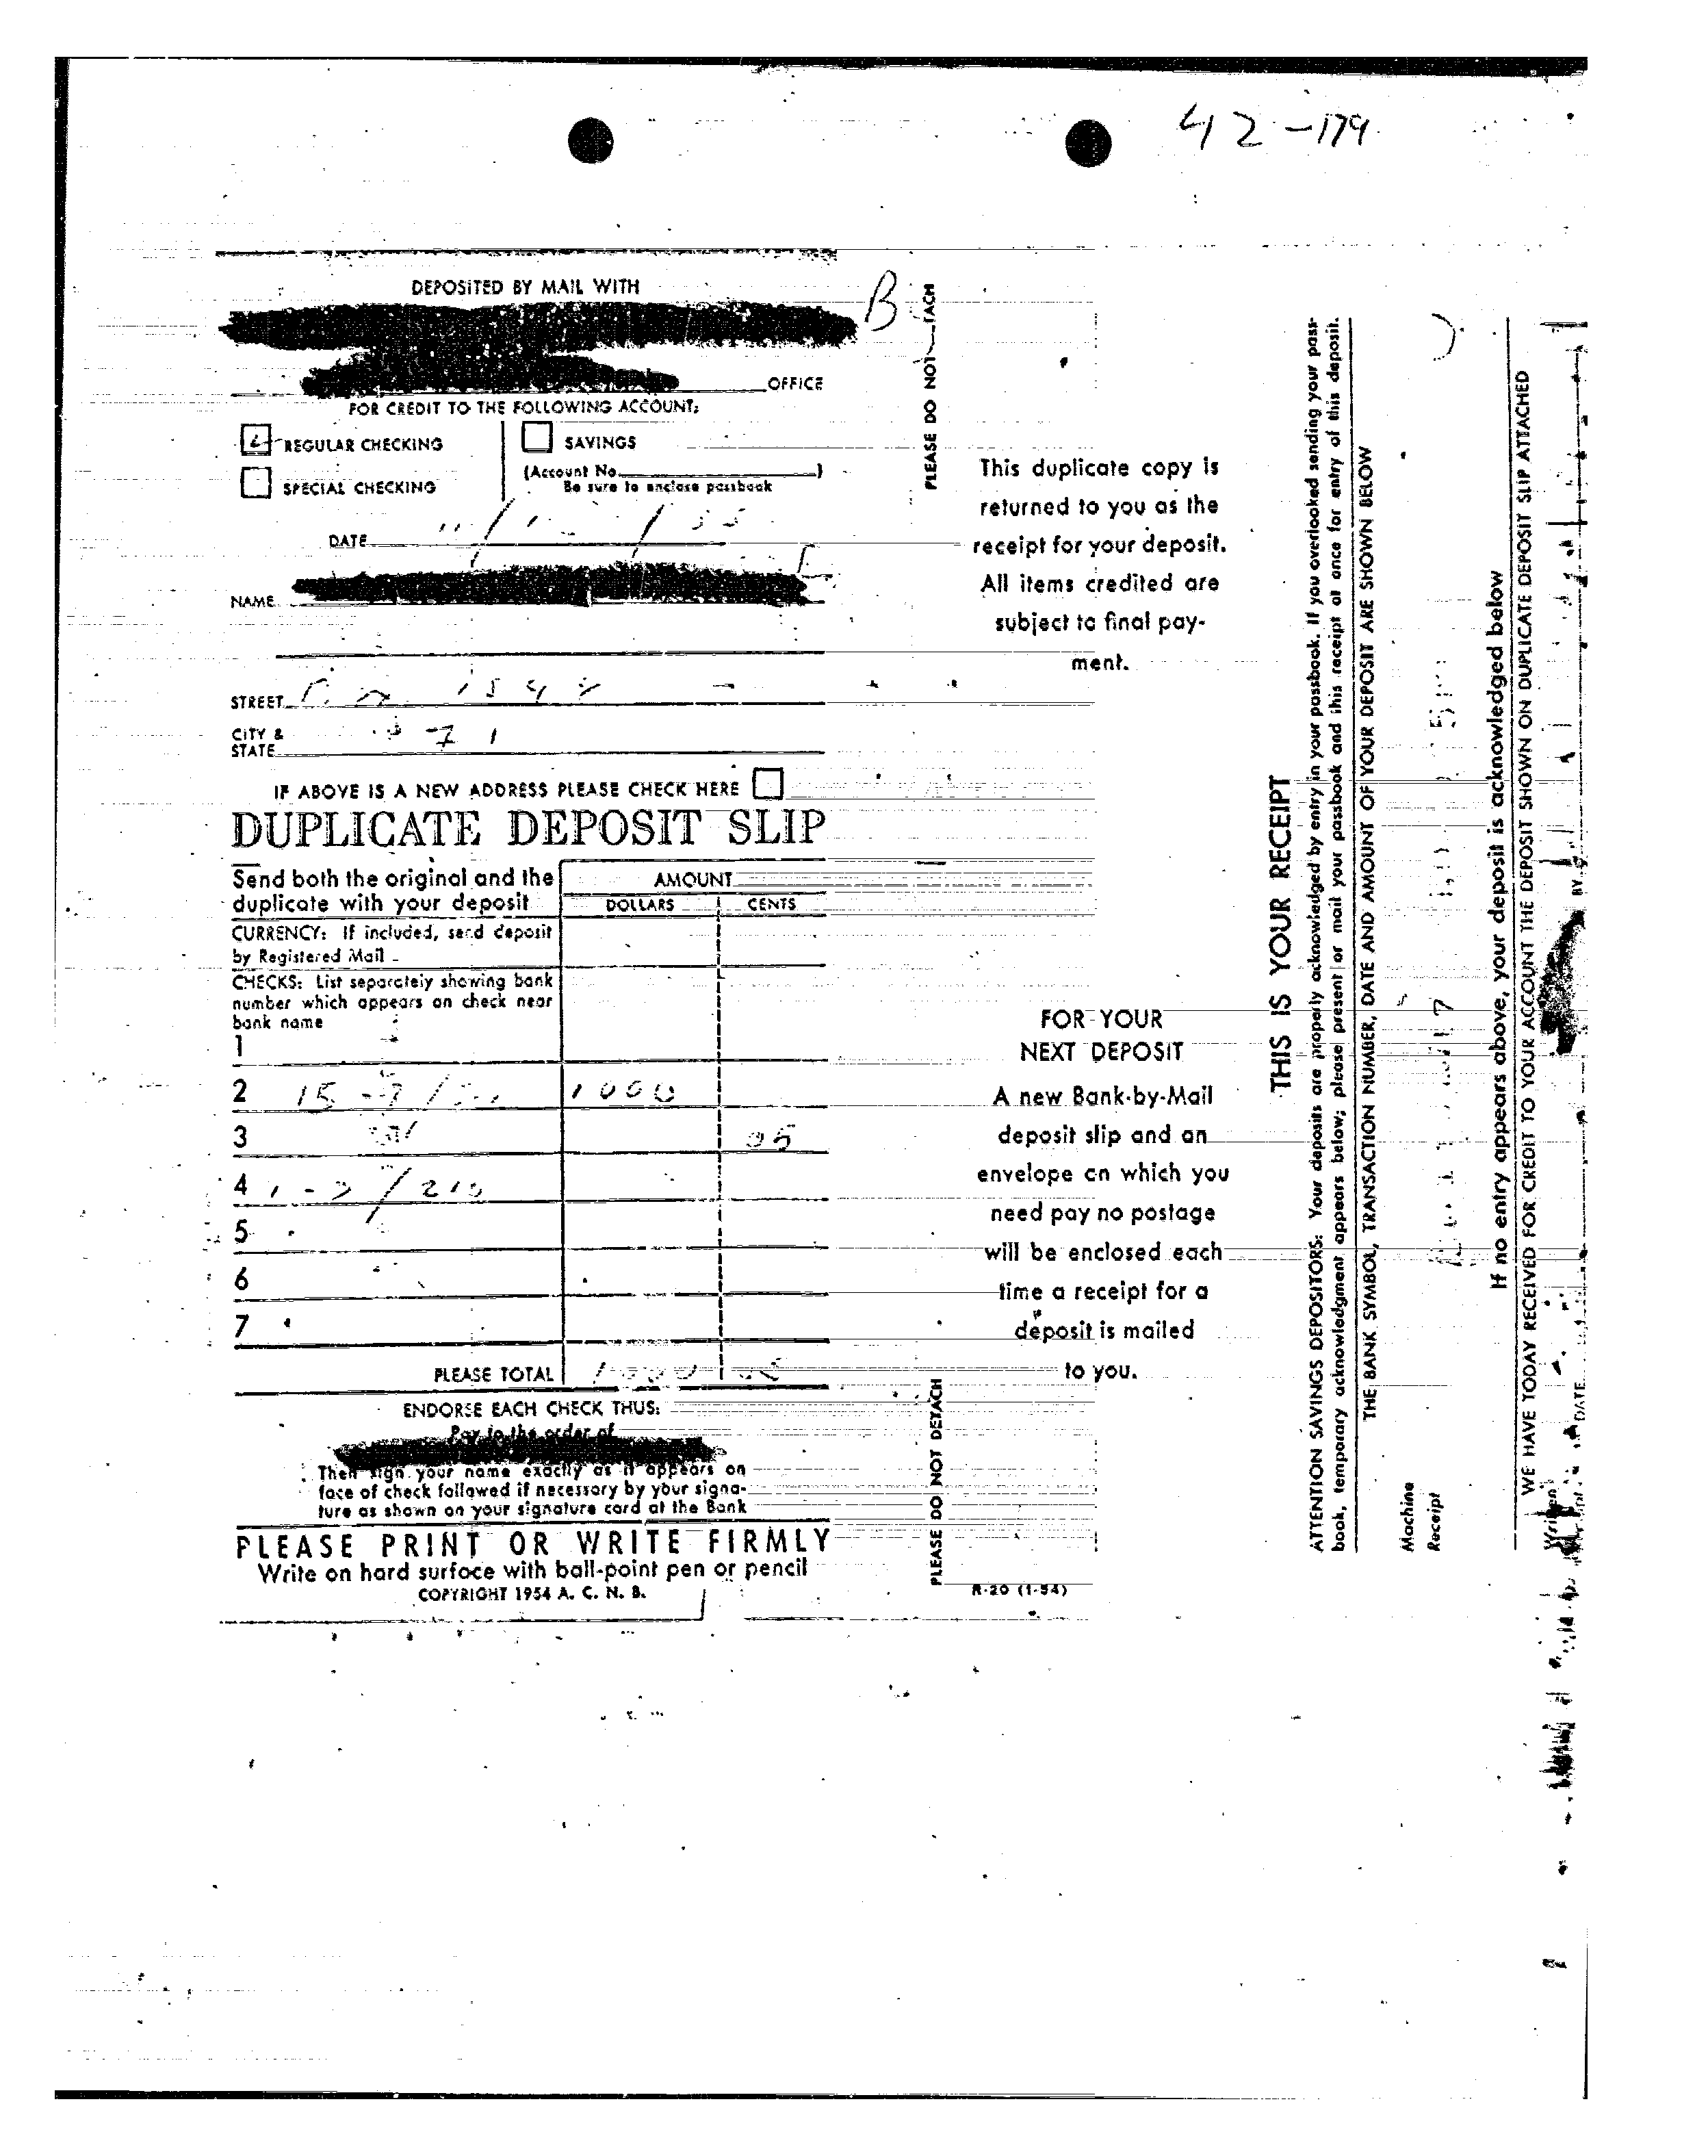 42-179
DEPOSITED BY MAIL WITH
B
OFFICE
FOR CREDIT TO THE FOLLOWING ACCOUNT:
REGULAR CHECKING
SAVINGS
(Account No. )
Be sure to enclose passbook
SPECIAL CHECKING
DATE
NAME
STREET
CITY &
STATE 71
IF ABOVE IS A NEW ADDRESS PLEASE CHECK HERE
DUPLICATE DEPOSIT SLIP
Send both the original and the
duplicate with your deposit
AMOUNT
DOLLARS CENTS
CURRENCY: If included, send deposit
by Registered Mail
CHECKS: List separately showing bank
number which appears on check near
bank name
1
2 1000
3 05
4
5
6
7
PLEASE TOTAL
ENDORSE EACH CHECK THUS:
Pay to the order of
Then sign your name exactly as it appears on
face of check followed if necessary by your signa-
ture as shown on your signature card at the Bank
PLEASE PRINT OR WRITE FIRMLY
Write on hard surface with ball-point pen or pencil
COPYRIGHT 1954 A. C. N. B.
PLEASE DO NOT TACH
This duplicate copy is
returned to you as the
receipt for your deposit.
All items credited are
subject to final pay-
ment.
FOR YOUR
NEXT DEPOSIT
A new Bank-by-Mail
deposit slip and an
envelope on which you
need pay no postage
will be enclosed each
time a receipt for a
deposit is mailed
to you.
PLEASE DO NOT DETACH
R-20 (1-54)
THIS IS YOUR RECEIPT
ATTENTION SAVINGS DEPOSITORS: Your deposits are properly acknowledged by entry in your passbook. If you overlooked sending your pass-
book, temporary acknowledgment appears below; please present or mail your passbook and this receipt at once for entry of this deposit.
THE BANK SYMBOL, TRANSACTION NUMBER, DATE AND AMOUNT OF YOUR DEPOSIT ARE SHOWN BELOW
Machine
Receipt
If no entry appears above, your deposit is acknowledged below
WE HAVE TODAY RECEIVED FOR CREDIT TO YOUR ACCOUNT THE DEPOSIT SHOWN ON DUPLICATE DEPOSIT SLIP ATTACHED
Written
DATE BY